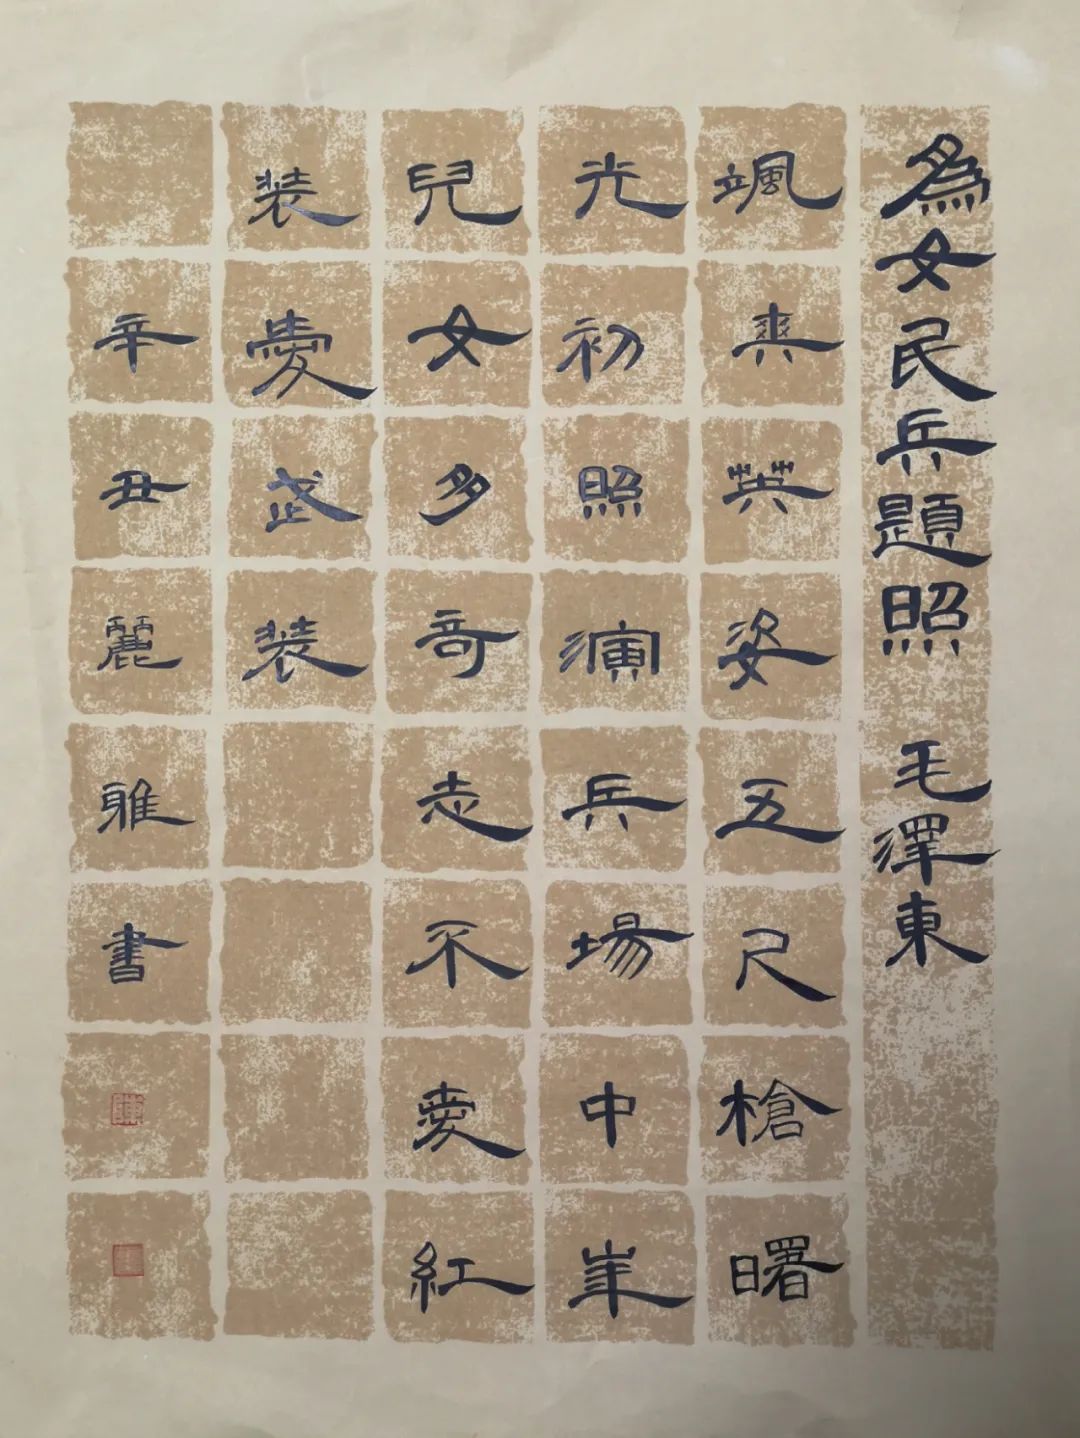 為女民兵題照 毛澤東
颯爽英姿五尺槍曙
光初照演兵場中華
兒女多奇志不愛紅
装愛武装
辛丑麗雅書